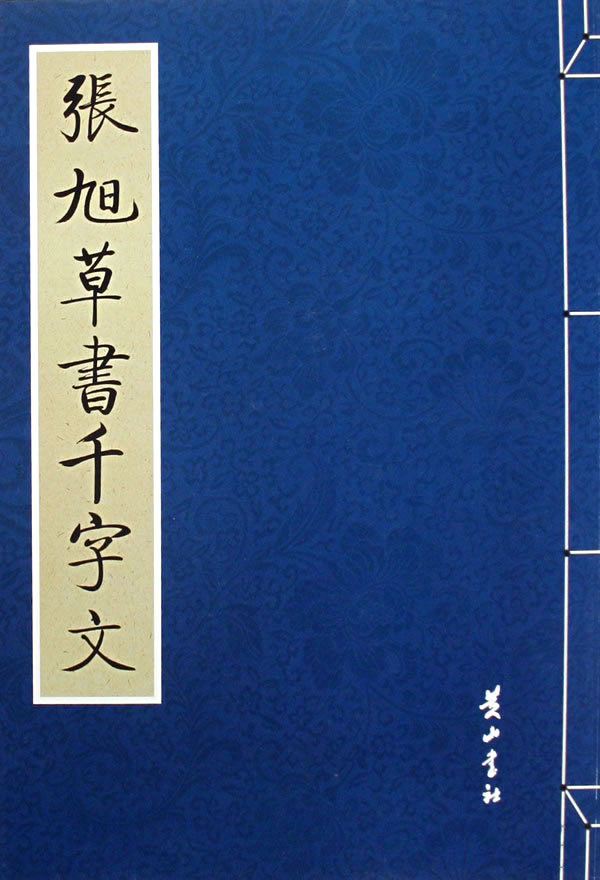 張旭草書千字文
黄山书社